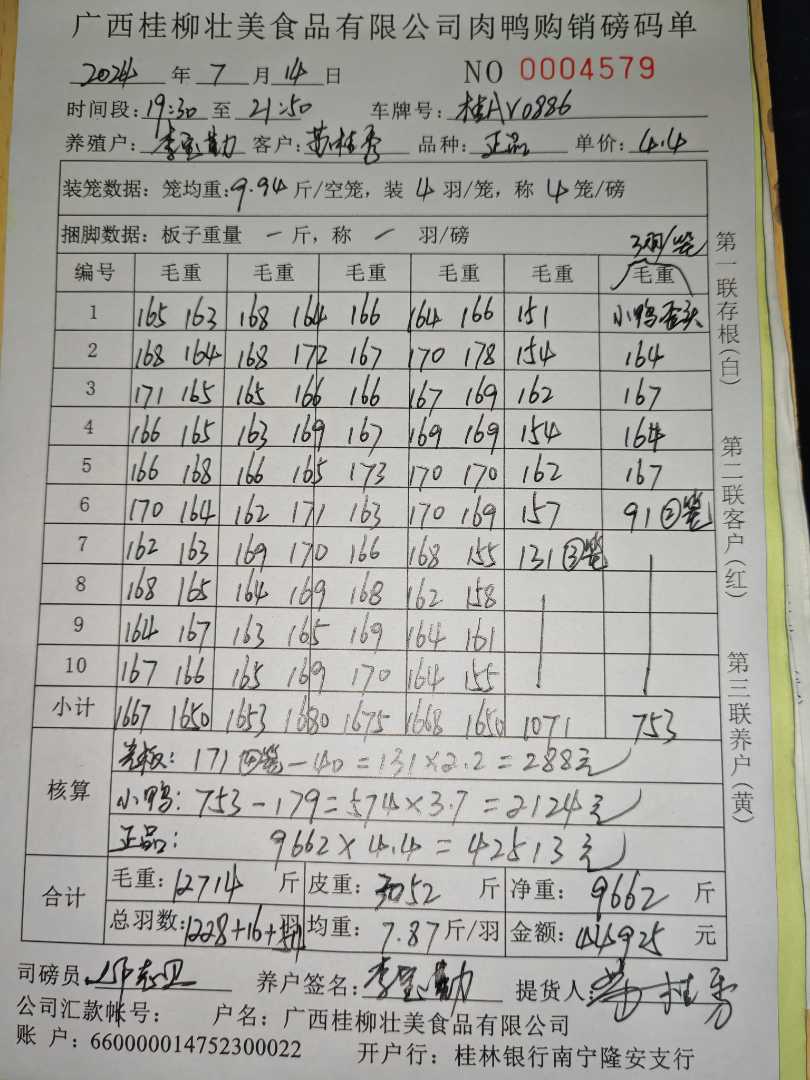 广西桂柳壮美食品有限公司肉鸭购销磅码单
2024 年 7 月 14 日 NO 0004579
时间段: 19:30 至 21:50 车牌号: 桂AV0886
养殖户: 李 勤 客户: 黄桂秀 品种: 正品 单价: 4.4
装笼数据: 笼均重: 9.94 斤/空笼, 装 4 羽/笼, 称 4 笼/磅
捆脚数据: 板子重量 一 斤, 称 一 羽/磅 3羽/笼
编号 毛重 毛重 毛重 毛重 毛重 毛重
1 165 163 168 164 166 164 166 151 小鸭歪头
2 168 164 168 172 167 170 178 154 164
3 171 165 165 166 166 167 169 162 167
4 166 165 163 169 167 169 169 154 164
5 166 168 166 165 173 170 170 162 167
6 170 164 162 171 163 170 169 157 91②笼
7 162 163 169 170 166 168 155 131③笼
8 168 165 164 169 168 162 158
9 164 167 163 165 169 164 161
10 167 166 165 169 170 164 155
小计 1667 1650 1653 1680 1675 1668 1650 1071 753
核算
板: 171④笼-40=131×2.2=288元
小鸭: 753-179=574×3.7=2124元
正品: 9662×4.4=42513元
合计 毛重: 12714 斤 皮重: 3052 斤 净重: 9662 斤
总羽数: 1228+16+ 羽 均重: 7.87 斤/羽 金额: 44925 元
司磅员 养户签名: 李 勤 提货人: 黄桂秀
公司汇款帐号: 户名: 广西桂柳壮美食品有限公司
账 户: 660000014752300022 开户行: 桂林银行南宁隆安支行
第一联存根(白) 第二联客户(红) 第三联养户(黄)